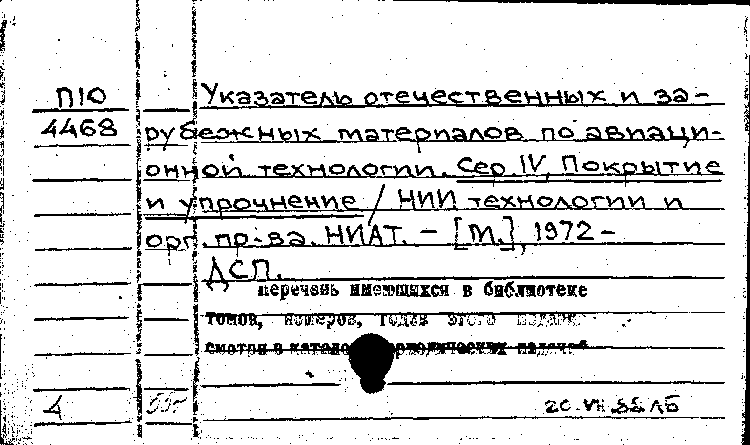 П10 Указатель отечественных и за-
4468 рубежных материалов по авиаци-
онной технологии. Сер. IV, Покрытие
и упрочнение / НИИ технологии и
орг. пр-ва. НИАТ. – [М.], 1972 –
ДСП.
перечень имеющихся в библиотеке
томов, номеров, годов этого издания
смотри в
4 55г 20.VII.88 ЛБ